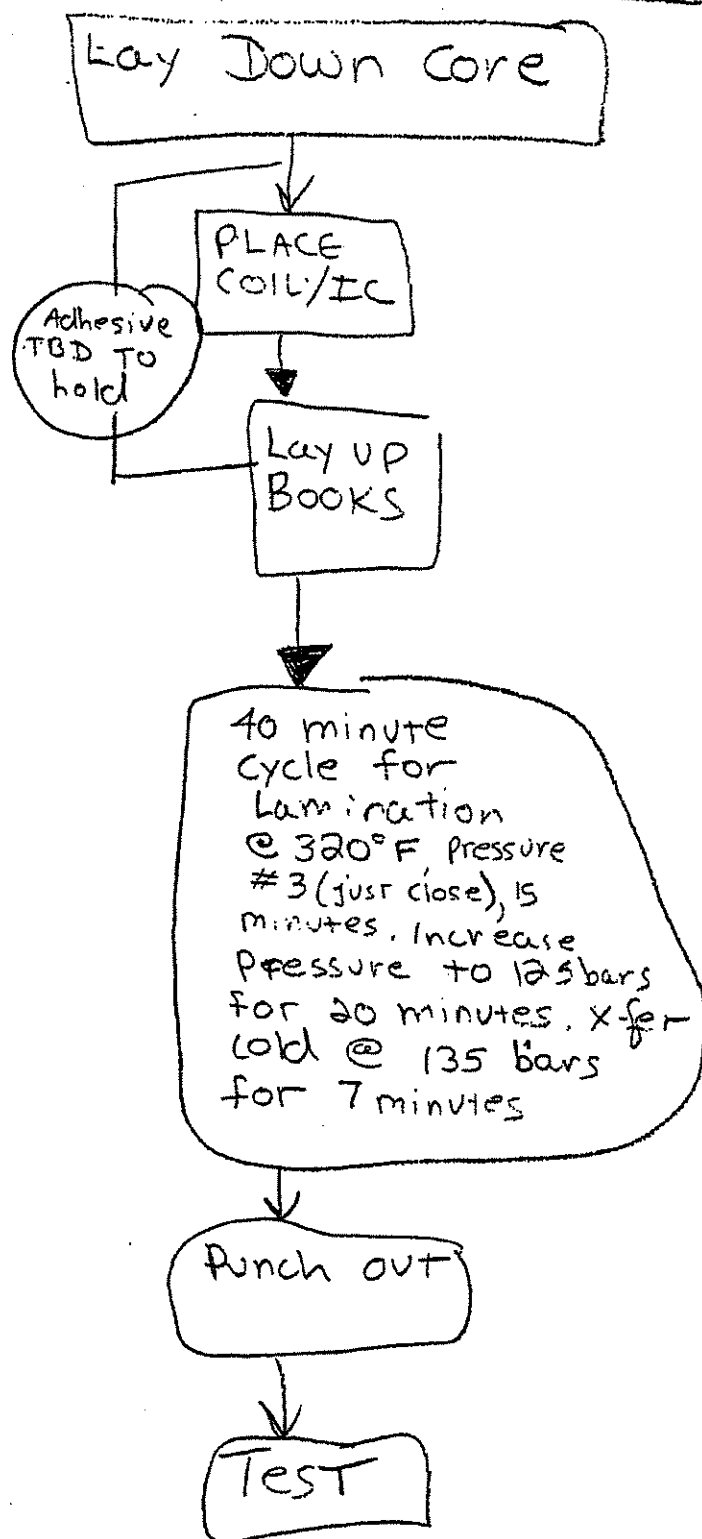 Lay Down Core
PLACE
COIL/IC
Adhesive
TBD TO
hold
Lay up
BOOKS
40 minute
Cycle for
Lamination
@ 320°F Pressure
#3 (just close), 15
minutes. Increase
Pressure to 125bars
for 20 minutes. X-fer
cold @ 135 bars
for 7 minutes
Punch out
Test